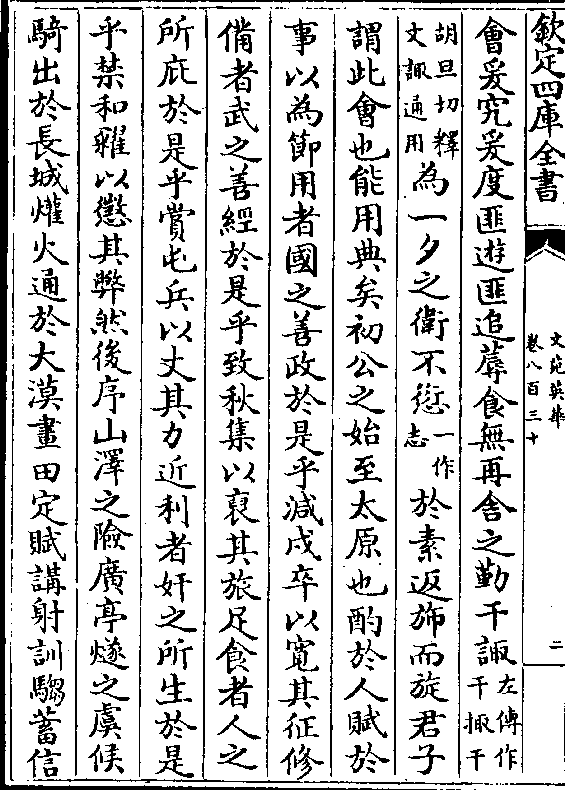 欽定四庫全書
文苑英華
卷八百三十
二
會爰究爰度匪遊匪追蓐食無再舍之勤干諏左傳作干掫干
胡旦切釋文諏通用為一夕之衛不愆一作志於素返斾而旋君子
謂此會也能用典矣初公之始至太原也酌於人賦於
事以為節用者國之善政於是乎減戍卒以寬其征修
備者武之善經於是乎致秋集以裒其旅足食者人之
所庇於是乎賞屯兵以丈其力近利者奸之所生於是
乎禁和糴以懲其弊然後序山澤之險廣亭燧之虞候
騎出於長城爟火通於大漠畫田定賦講射訓騶蓄信